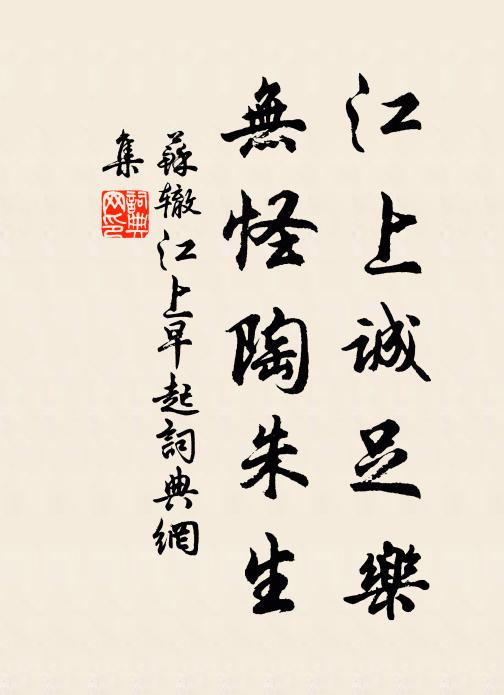 江上誠足樂
無怪陶朱生
蘇辙江上早起詞典網
集
詞典
网印